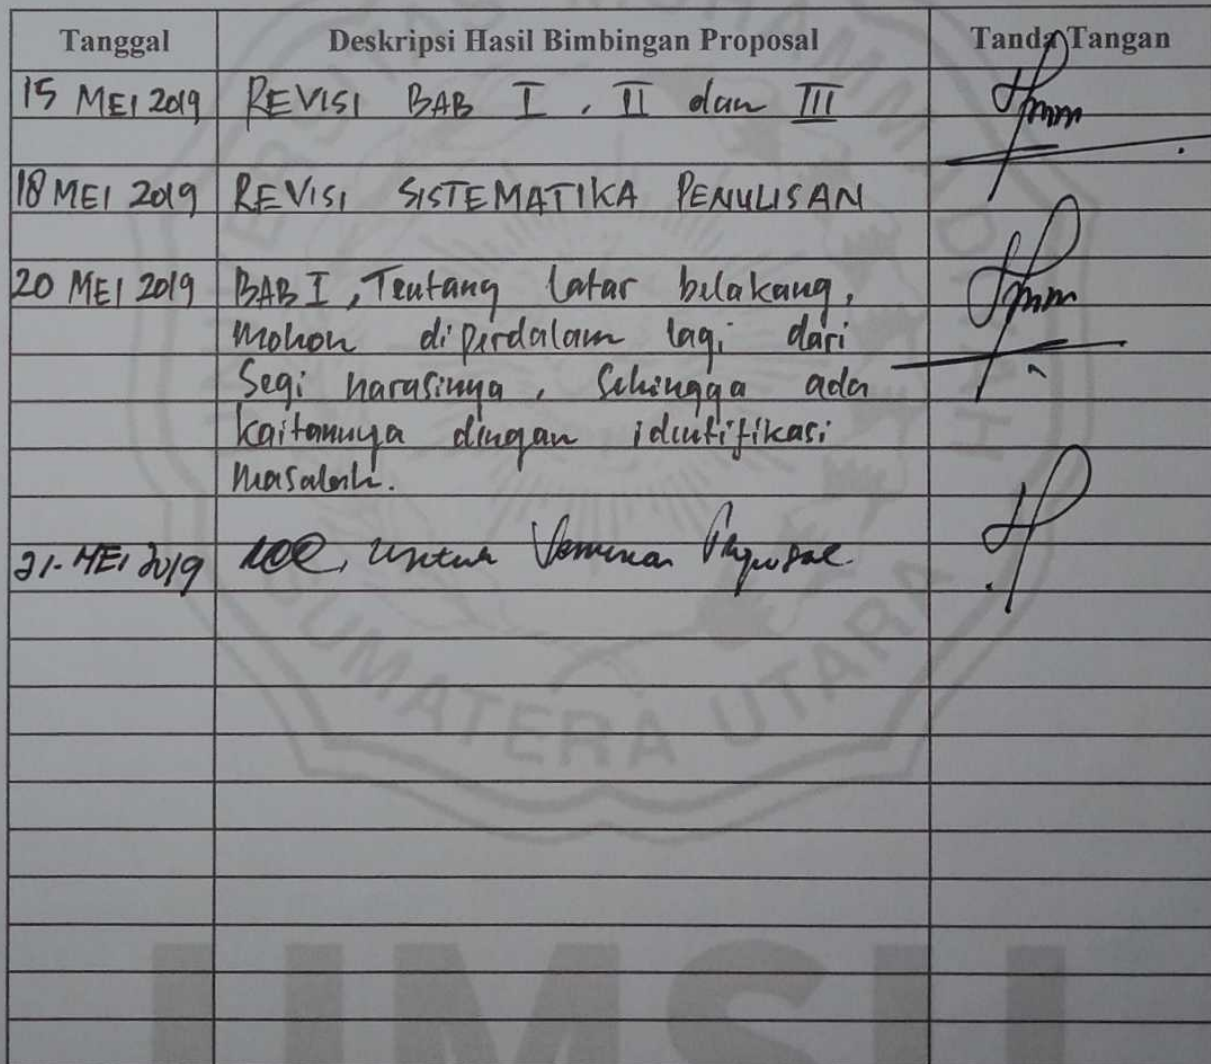 Tanggal Deskripsi Hasil Bimbingan Proposal Tanda Tangan
15 MEI 2019 REVISI BAB I, II dan III
18 MEI 2019 REVISI SISTEMATIKA PENULISAN
20 MEI 2019 BAB I, Tentang latar belakang,
mohon diperdalam lagi dari
Segi narasinya, Sehingga ada
kaitannya dengan identifikasi
masalah.
21. MEI 2019 ACC, untuk Seminar Proposal.
SUMATERA UTARA
UMSU